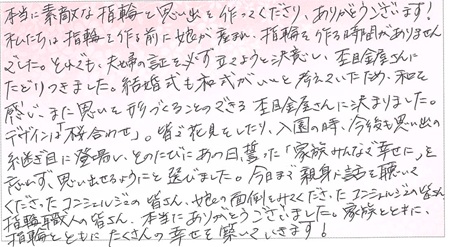 本当に素敵な指輪と思い出を作ってくださり、ありがとうございます！
私たちは指輪を作る前に娘が産まれ、指輪を作る時間がありません
でした。それでも、夫婦の証を必ず立てようと決意し、杢目金屋さんに
たどりつきました。結婚式も和式がいいと考えていたため、和を
感じ、また思いを形づくることのできる杢目金屋さんに決まりました。
デザインは「桜合わせ」。皆で花見をしたり、入園の時、今後も思い出の
継ぎ目に登場し、そのたびにあの日、誓った「家族みんなで幸せに」を
忘れず、思い出せるようにと選びました。今日まで親身に話を聴いて
くださったコンシェルジュの皆さん、娘の面倒をみてくださったコンシェルジュの皆さん
指輪職人の皆さん、本当にありがとうございました。家族とともに、
指輪とともにたくさんの幸せを築いていきます！